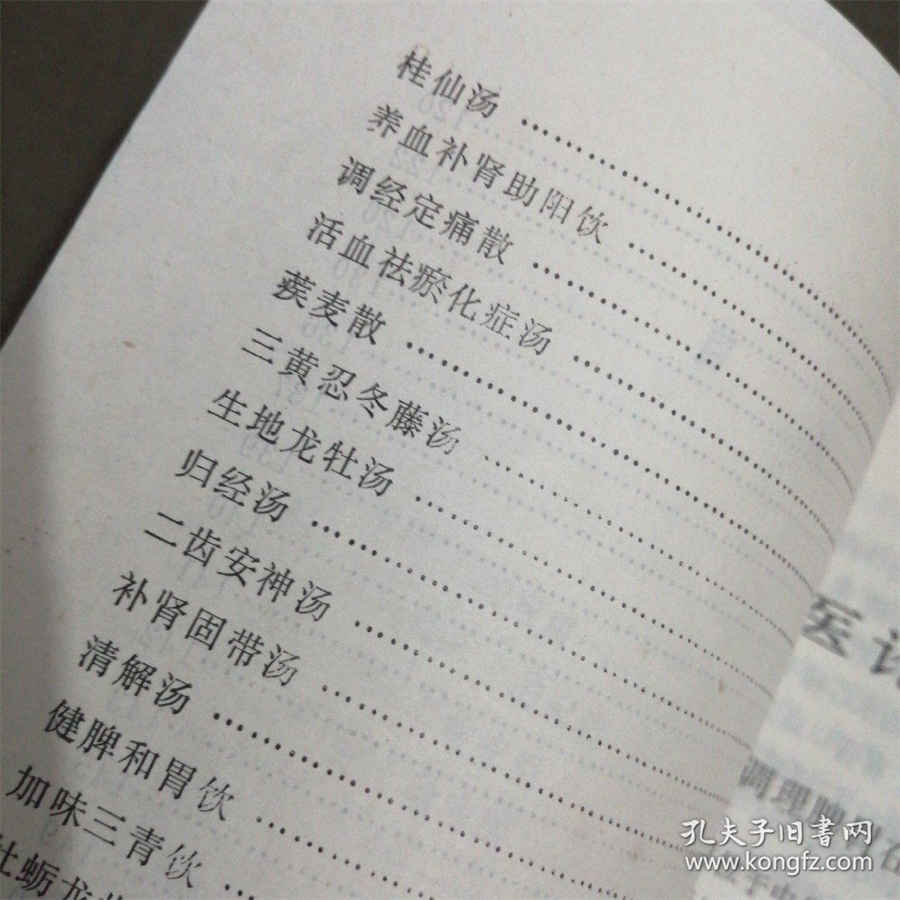 桂仙汤
养血补肾助阳饮
调经定痛散
活血祛瘀化症汤
蒺麦散
三黄忍冬藤汤
生地龙牡汤
归经汤
二齿安神汤
补肾固带汤
清解汤
健脾和胃饮
加味三青饮
牡蛎龙
医
调理脾
孔夫子旧书网
www.kongfz.com